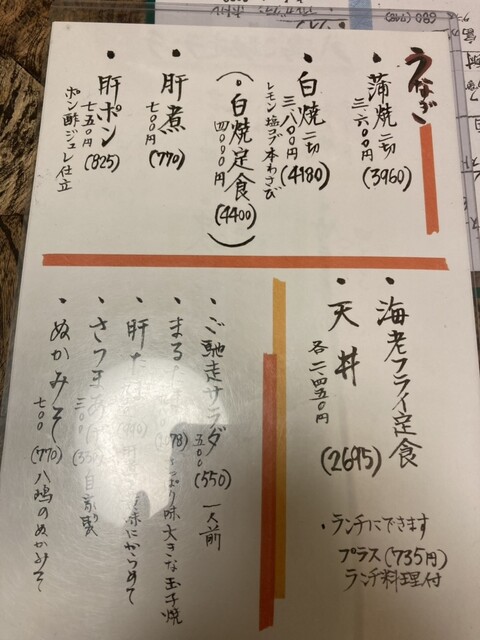 うなぎ
・蒲焼 二切
三、六〇〇円 (3960)
・白焼 二切
三、八〇〇円 (4180)
レモン 塩コブ 本わさび
(・白焼定食
四〇〇〇円 (4400))
・肝煮
七〇〇円 (770)
・肝ポン
七五〇円 (825)
ポン酢ジュレ仕立
・海老フライ定食
・天丼
各二、四五〇円
(2695)
・ランチにできます
プラス(735円)
ランチ料理付
・ご馳走サラダ
五〇〇 (550) 一人前
・まるた
味 大きな玉子焼
・肝た
にからめて
・さつまあげ
三〇〇 自家製
・ぬかみそ
七〇〇 (770) 八鴫のぬかみそ